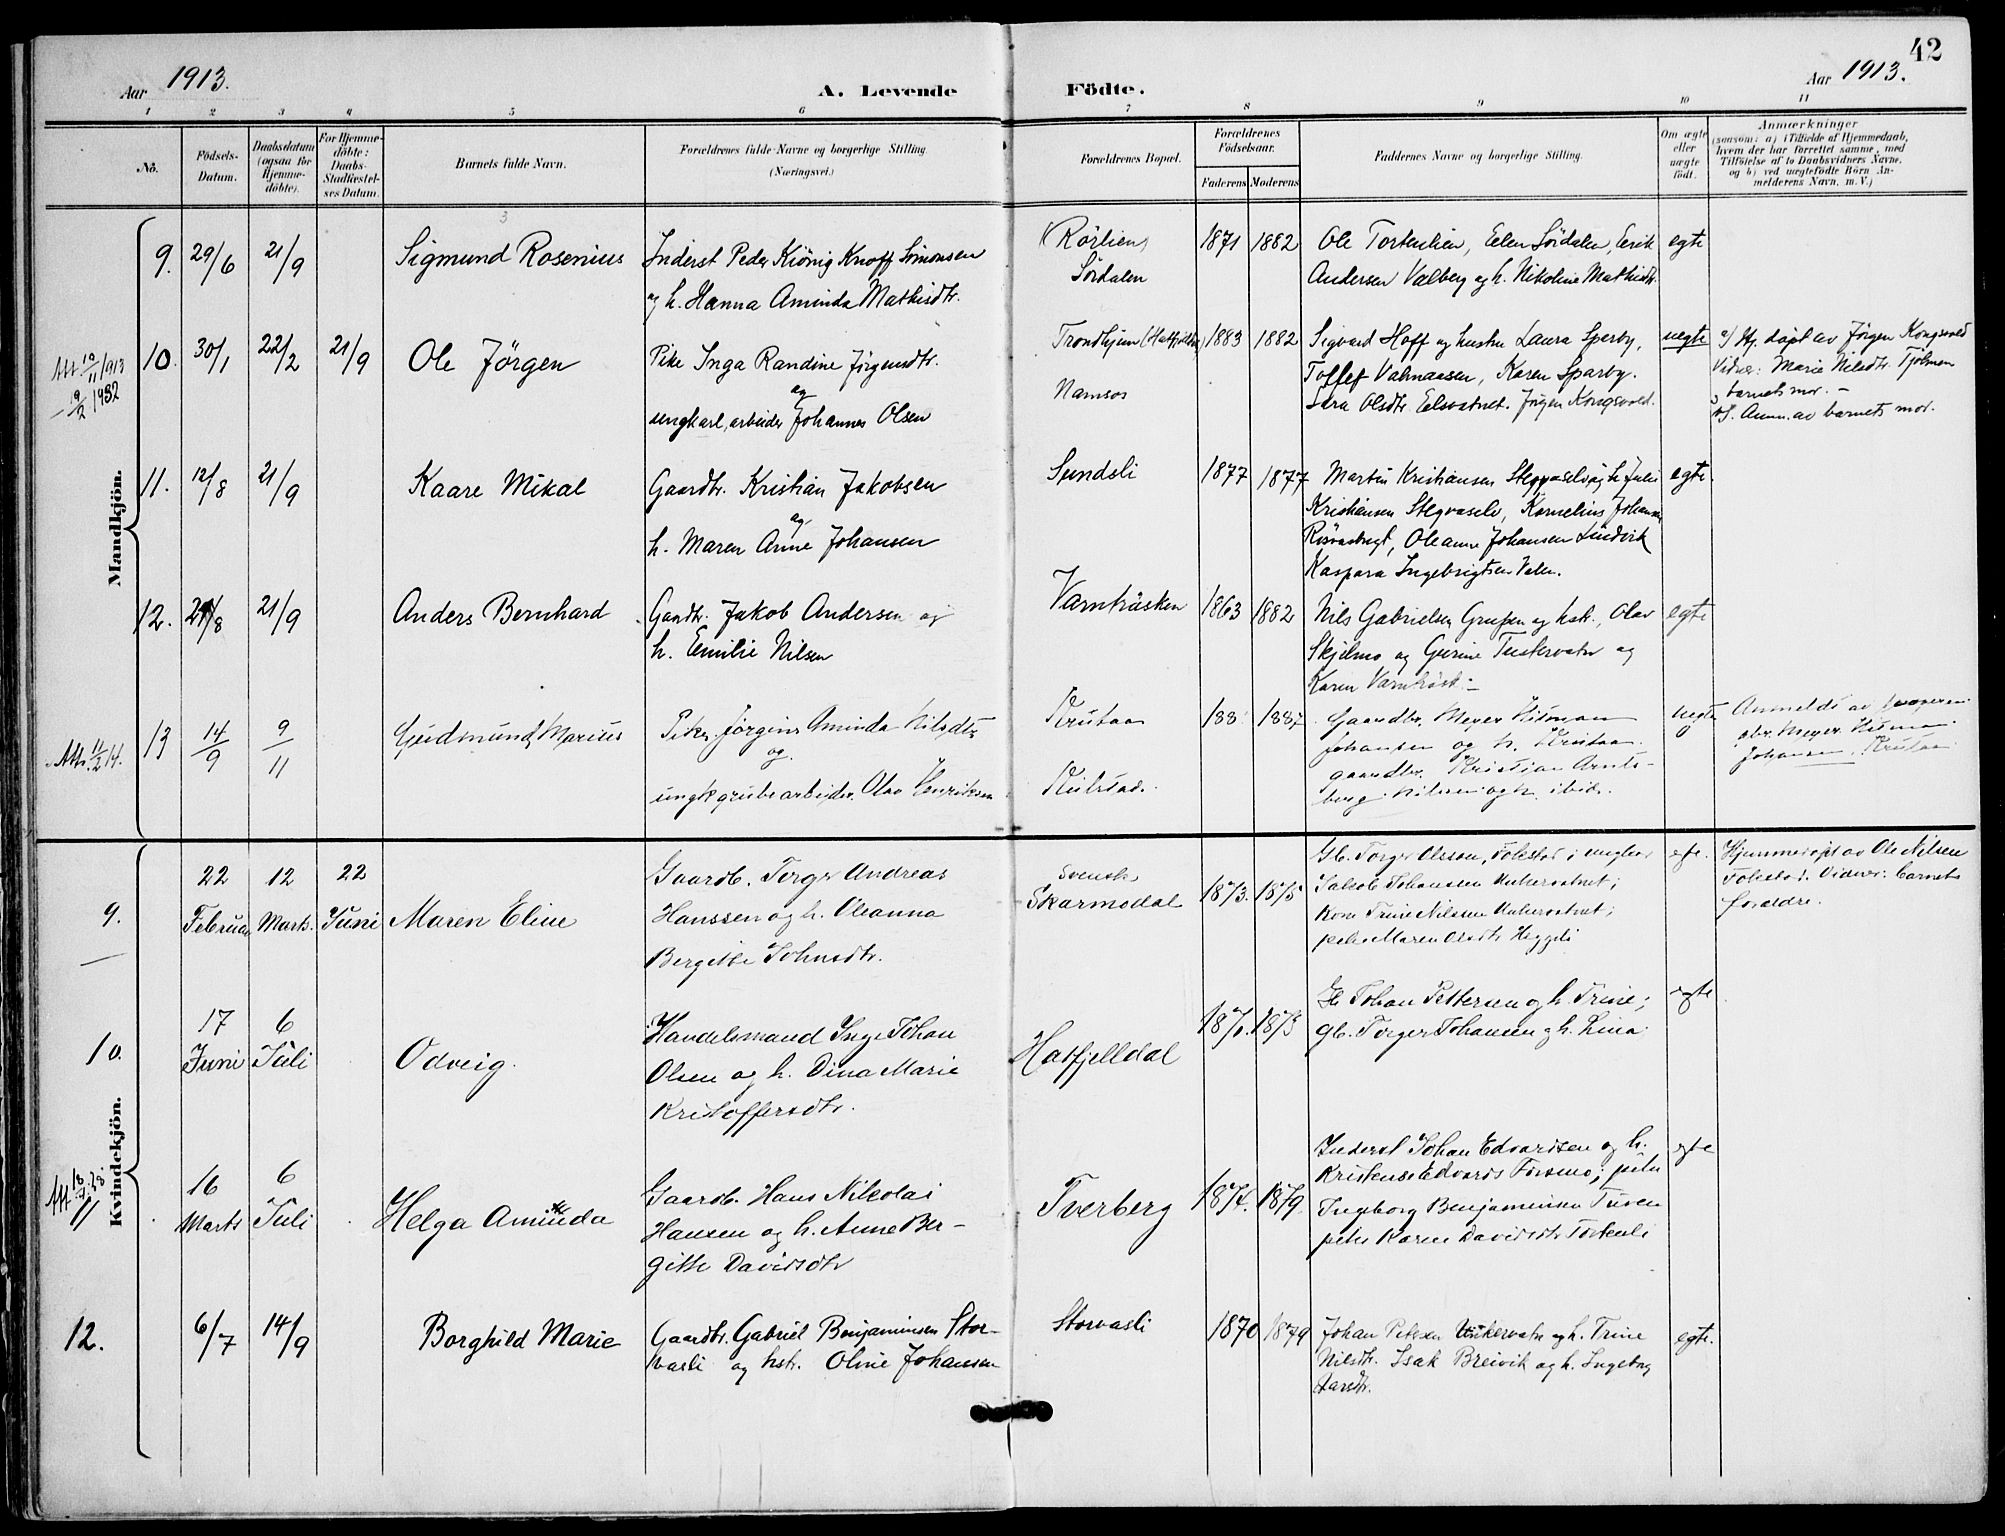 42
Aar 1913.
A. Levende Födte.
Aar 1913.
1 2 3 4 5 6 7 8 9 10 11
No.
Födsels-Datum.
Daabsdatum (ogsaa for Hjemme-döbte).
For Hjemme-döbte: Daabs-Stadfæstel-ses Datum.
Barnets fulde Navn.
Forældrenes fulde Navne og borgerlige Stilling (Næringsvei.)
Forældrenes Bopæl.
Forældrenes Födselsaar.
Faderens Moderens
Faddernes Navne og borgerlige Stilling.
Om ægte eller uægte födt.
Anmærkninger
(saasom: a) i Tilfælde af Hjemmedaab,
hvem der har forrettet samme, med
Tilföielse af to Daabsvidners Navne,
og b) ved uægtefödte Börn An-
melderens Navn, m. V.)
Mandkjön.
9. 29/6 21/9 Sigmund Rosenius
Inderst Peder Kiönig Knoff Simonsen
og h. Hanna Aminda Mathisdtr.
Rörlien
Sördalen
1871 1882
Ole Tortenlien, Elen Sördalen, Eerik
Andersen Valberg og h. Nikoline Mathisdtr.
egte
Att. 10/11 1913
19/2 1932
10. 30/1 22/2 21/9 Ole Jörgen
Pike Inga Randine Jörgensdtr.
og
ungkarl, arbeider Johannes Olsen
Trondhjem
Namsos
1883 1882
Sigvard Hoff og hustru Laura Sparby,
Toffef Valmaasen, Karen Sparby.
Sara Olsdtr. Elsvatnet. Jörgen Kongsvold.
uegte
a/ Hj. döpt av Jörgen Kongsvold
Vidner: Marie Nilsdtr. Tjolmen
barnets mor.
b/. Anm. av barnets mor.
11. 12/8 21/9 Kaare Mikal
Gaardbr. Kristian Jakobsen
og
h. Maren Anne Johansen
Sundsli
1877 1877
Martin Kristiansen og h. Juli
Kristiansen Stegvaselv, Kornelius Johansen
Oleanna Johansen Lindvik
Kaspara Ingebrigtsen Valen.
egte.
12. 21/9 Anders Bernhard
Gardbr. Jakob Andersen og
h. Emilie Nilsen
Varnträsken
1863 1882
Nils Gabrielsen Grubben og hstr., Olav
Skjelmo og Gurine Tustervatn og
Karen Varnträsk.
egte
13 14/9 9/11 Gudmund Marius
Pike Jörgine Aminda Nilsdtr.
og
ungk. grubearbeider Olav Henriksen
Krutaa
1887
Gaardbr. Meyer
Johansen og h. Krutaa.
gaardbr. Kristian Arnts-
berg Nilsen og h. ibid.
uegte
Anmeldt av
gbr. Meyer
Johansen, Krutaa
Kvindekjön.
9. 22 Februar 12 Marts. 22 Juni Maren Eline
Gaardb. Torger Andreas
Hanssen og h. Oleanna
Bergitte Johnsdtr.
Svensk
Skarmodal
1873. 1875
Gb. Torger Olsson, i ungkar
Jakob Johansen Unkervatnet;
Kone Trine Nilsen Unkervatnet;
pike Maren Olsdtr Heggeli
egte.
Hjemmedöpt av Ole Nilsen
Vidner: barnets
forældre.
10. 17 Juni 6 Juli Odveig.
Handelsmand Inge Johan
Olsen og h. Dina Marie
Kristoffersdtr.
Hatfjelldal
1873
Johan Pettersen og h. Trine;
gb. Torger Johansen og h. Lina.
egte
11 16 Marts 6 Juli Helga Aminda
Gaardb. Hans Nikolai
Hansen og h. Anne Ber-
gitte Davidsdtr
Tverberg
1874. 1879.
Inderst Johan Edvardsen og h.
Kristense Edvards Forsmo; pike
Ingeborg Benjaminsen Tuven
pike Karen Davidsdtr Tortenli
egte
12. 6/7 14/9 Borghild Marie
Gaardbr. Gabriel Benjaminsen Stor-
vasli og hstr. Oline Johansen
Storvasli
1870 1879
Johan Petersen Unkervatn og h. Trine
Nilsdtr. Isak Breivik og h. Ingeborg
egte.